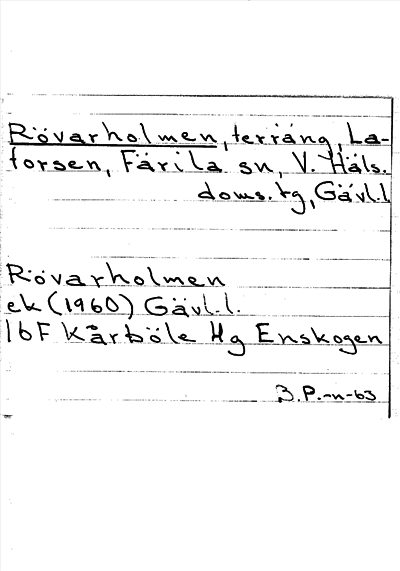 Rövarholmen, terräng, La-
forsen, Färila sn, V. Häls.
doms. tg, Gävl.l
Rövarholmen
ek (1960) Gävl.l.
16F Kårböle Hg Enskogen
B.P.-n-63